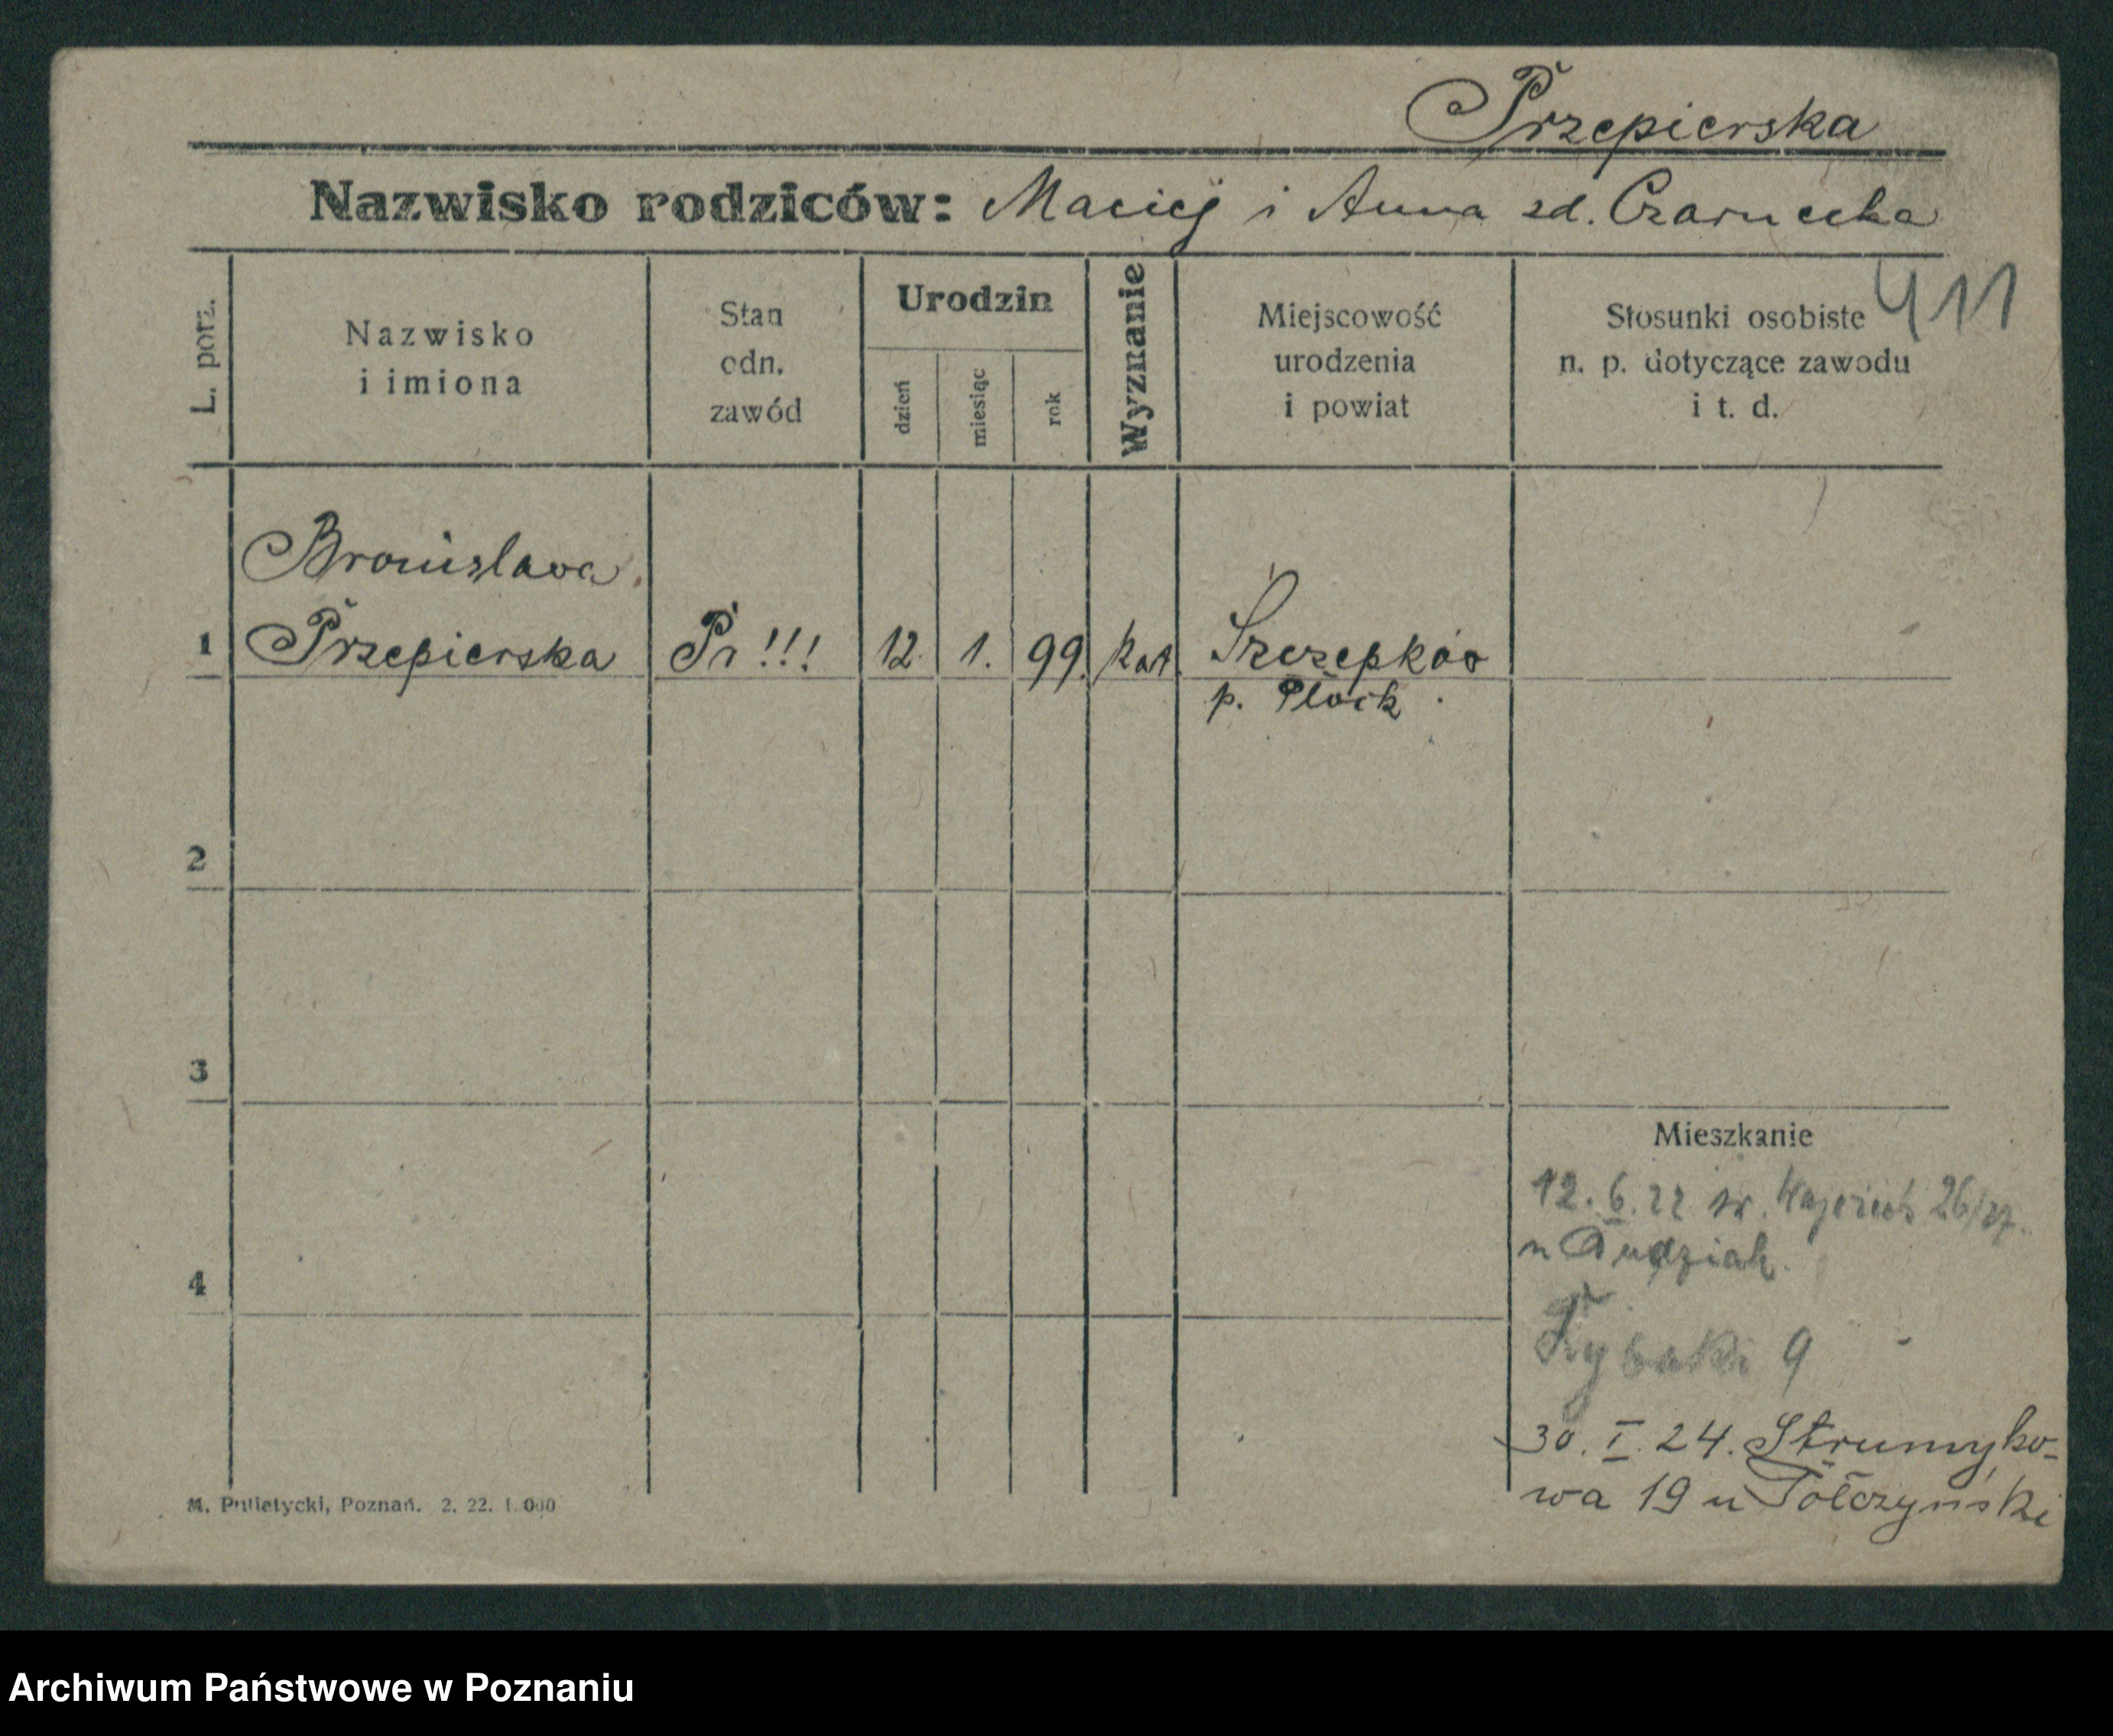 Przepierska
Nazwisko rodziców: Maciej i Anna zd. Czarnecka
411
L. porz.
Nazwisko
i imiona
Stan
odn.
zawód
Urodzin
dzień
miesiąc
rok
Wyznanie
Miejscowość
urodzenia
i powiat
Stosunki osobiste
n. p. dotyczące zawodu
i t. d.
Bronislava
1 Przepierska Pr !!! 12. 1. 99. kat.
p. Płock
2
3
4
Mieszkanie
12. 6. 22 św. Wojciech 26/27.
u Dudziak.
Rybaki 9
30. I. 24. Strumyko-
wa 19 u
M. Putiatycki, Poznań. 2. 22. 1.000
Archiwum Państwowe w Poznaniu